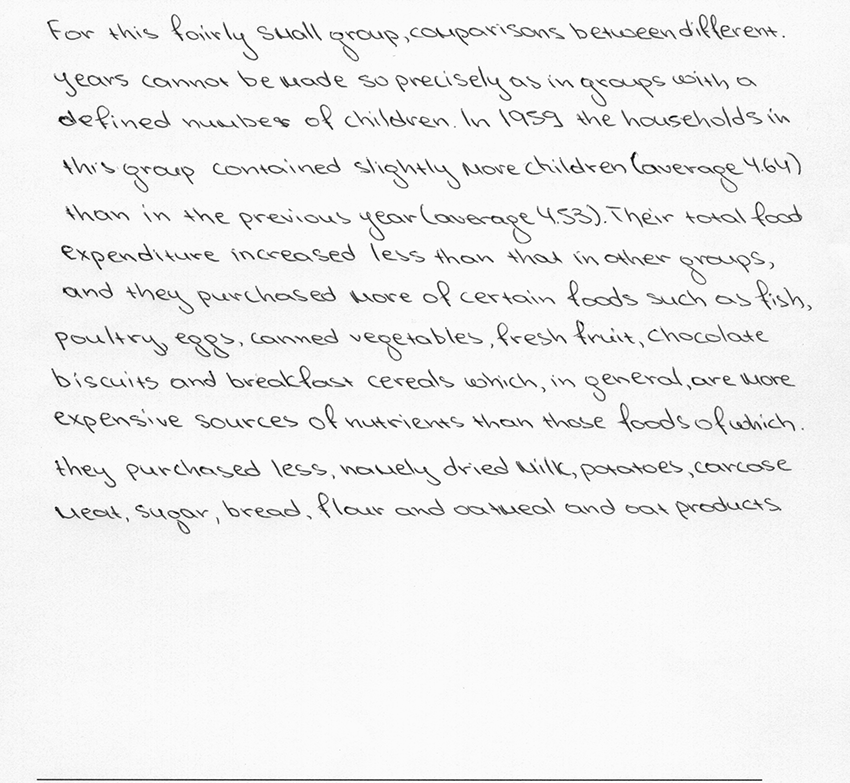 For this fairly small group, comparisons between different.
years cannot be made so precisely as in groups with a
defined number of children. In 1959 the households in
this group contained slightly more children (average 4.64)
than in the previous year (average 4.53). Their total food
expenditure increased less than that in other groups,
and they purchased more of certain foods such as fish,
poultry, eggs, canned vegetables, fresh fruit, chocolate
biscuits and breakfast cereals which, in general, are more
expensive sources of nutrients than those foods of which.
they purchased less, namely dried milk, potatoes, carcase
meat, sugar, bread, flour and oatmeal and oat products